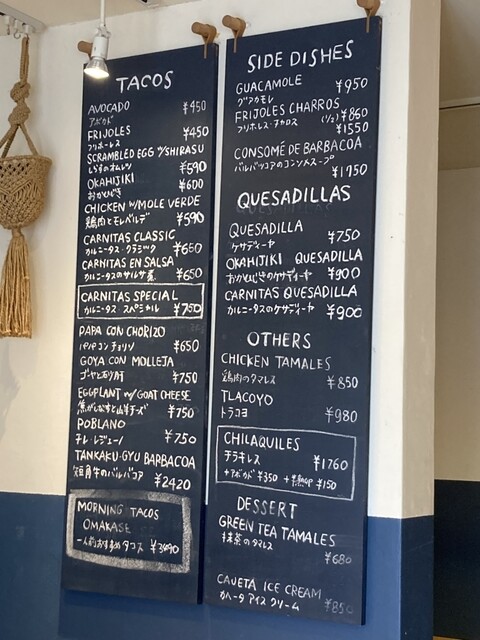 TACOS
AVOCADO ¥450
アボカド
FRIJOLES ¥450
フリホーレス
SCRAMBLED EGG w/SHIRASU
しらすのオムレツ ¥590
OKAHIJIKI ¥600
おかひじき
CHICKEN w/MOLE VERDE
鶏肉とモレベルデ ¥590
CARNITAS CLASSIC
カルニータス クラシック ¥650
CARNITAS EN SALSA
カルニータスのサルサ煮 ¥650
CARNITAS SPECIAL
カルニータス スペシャル ¥750
PAPA CON CHORIZO
パパ コン チョリソ ¥650
GOYA CON MOLLEJA
ゴーヤと砂肝 ¥750
EGGPLANT w/GOAT CHEESE
焦がしなすと山羊チーズ ¥750
POBLANO
チレ・レジェーノ ¥750
TANKAKU-GYU BARBACOA
短角牛のバルバコア ¥2420
MORNING TACOS
OMAKASE
一人前おすすめタコス
SIDE DISHES
GUACAMOLE ¥950
グアカモレ
FRIJOLES CHARROS
フリホーレス・チャロス (1/2) ¥860
¥1550
CONSOMÉ DE BARBACOA
バルバッコアのコンソメスープ
¥1750
QUESADILLAS
QUESADILLA ¥750
ケサディーヤ
OKAHIJIKI QUESADILLA
おかひじきのケサディーヤ ¥900
CARNITAS QUESADILLA
カルニータスのケサディーヤ ¥900
OTHERS
CHICKEN TAMALES
鶏肉のタマレス ¥850
TLACOYO
トラコヨ ¥980
CHILAQUILES
チラキレス ¥1760
+アボカド ¥350 ¥150
DESSERT
GREEN TEA TAMALES
抹茶のタマレス ¥680
CAJETA ICE CREAM
カヘータ アイスクリーム ¥850